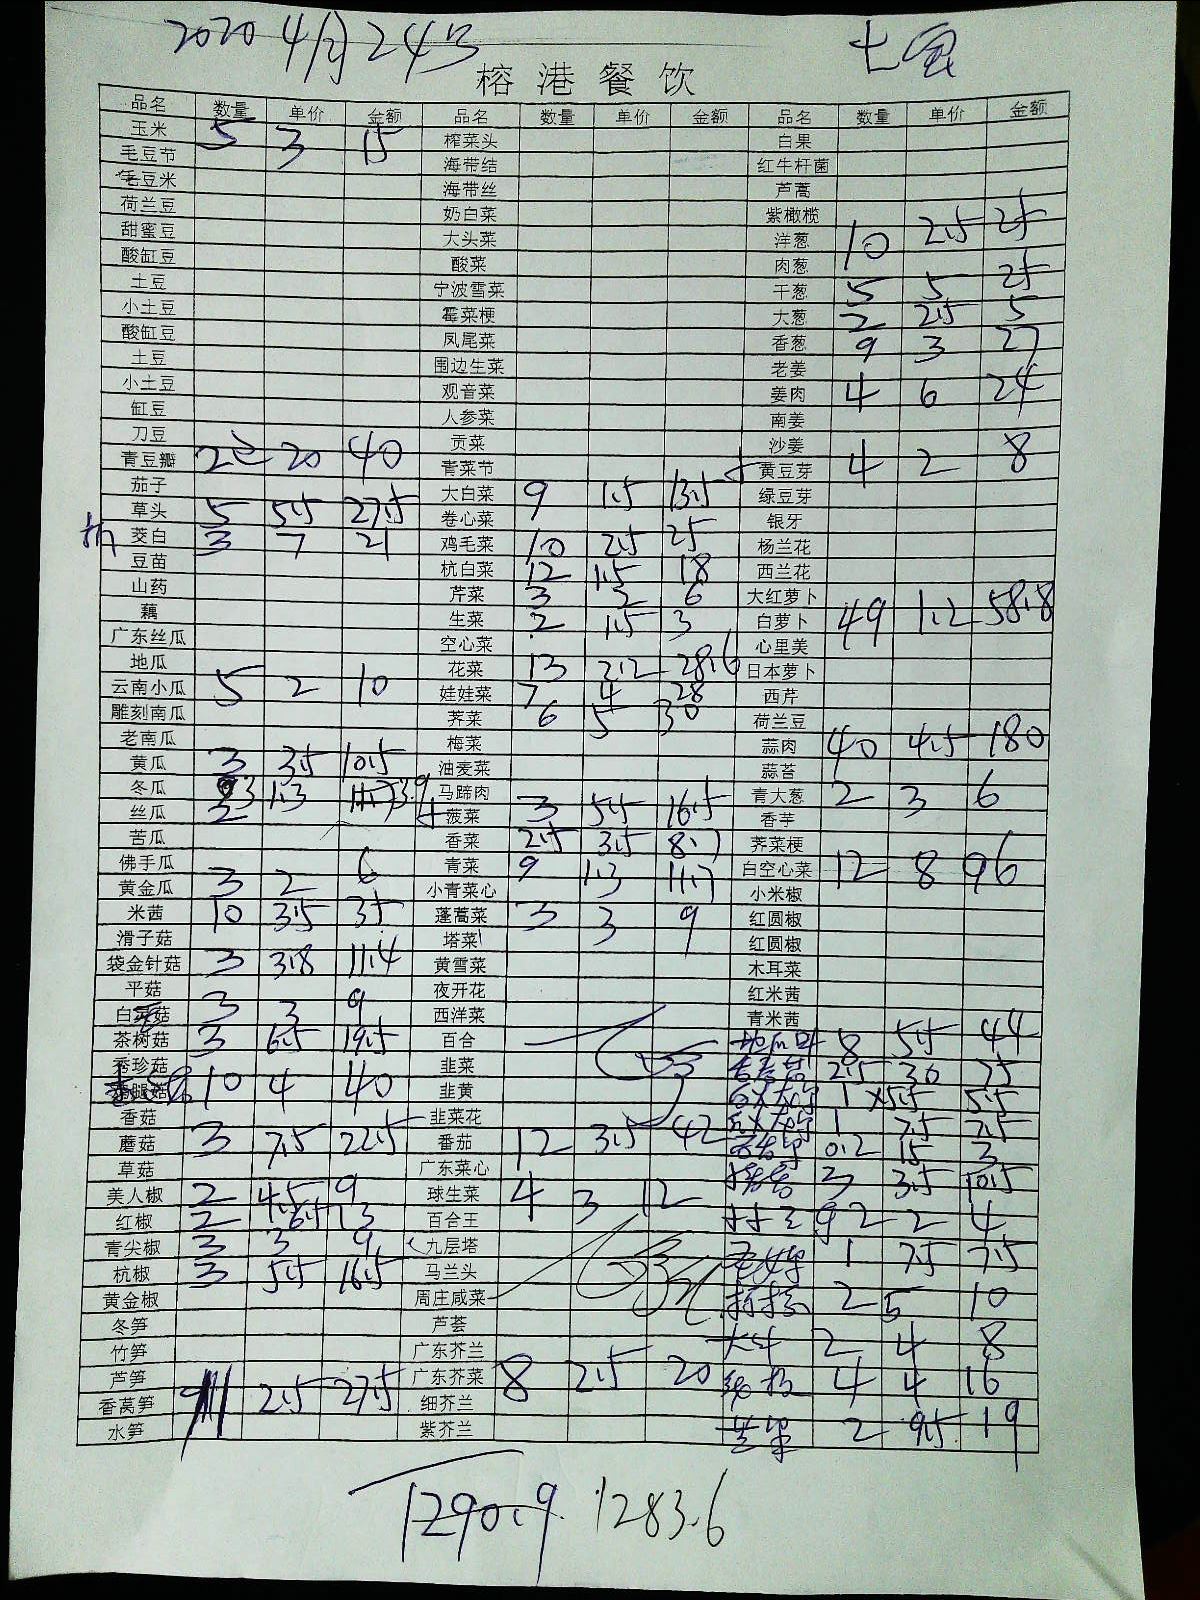 2020 4月24号
榕港餐饮
品名 数量 单价 金额 品名 数量 单价 金额 品名 数量 单价 金额
玉米 5 3 15 榨菜头 白果
毛豆节 海带结 红牛杆菌
毛豆米 海带丝 芦蒿
荷兰豆 奶白菜 紫橄榄
甜蜜豆 大头菜 洋葱 10 2.5 25
酸缸豆 酸菜 肉葱
土豆 宁波雪菜 干葱 5 5 25
小土豆 霉菜梗 大葱 2 2.5 5
酸缸豆 凤尾菜 香葱 9 3 27
土豆 围边生菜 老姜
小土豆 观音菜 姜肉 4 6 24
缸豆 人参菜 南姜
刀豆 贡菜 沙姜
青豆瓣 2 20 40 青菜节 黄豆芽 4 2 8
茄子 大白菜 9 1.5 13.5 绿豆芽
草头 5 5.5 27.5 卷心菜 银牙
茭白 3 7 21 鸡毛菜 10 2.5 25 杨兰花
豆苗 杭白菜 12 1.5 18 西兰花
山药 芹菜 3 2 6 大红萝卜
藕 生菜 2 1.5 3 白萝卜 49 1.2 58.8
广东丝瓜 空心菜 心里美
地瓜 花菜 13 2.2 28.6 日本萝卜
云南小瓜 5 2 10 娃娃菜 7 4 28 西芹
雕刻南瓜 荠菜 6 5 30 荷兰豆
老南瓜 梅菜 蒜肉 40 4.5 180
黄瓜 3 3.5 10.5 油麦菜 蒜苔
冬瓜 3 1.3 3.9 马蹄肉 青大葱 2 3 6
丝瓜 菠菜 3 5.5 16.5 香芋
苦瓜 香菜 2.5 3.5 8.7 荠菜梗
佛手瓜 青菜 9 1.3 11.7 白空心菜 12 8 96
黄金瓜 3 2 6 小青菜心 小米椒
米茜 10 3.5 35 蓬蒿菜 3 3 9 红圆椒
滑子菇 塔菜 红圆椒
袋金针菇 3 3.8 11.4 黄雪菜 木耳菜
平菇 夜开花 红米茜
白灵菇 3 3 9 西洋菜 青米茜
茶树菇 3 6.5 19.5 百合 8 5.5 44
秀珍菇 韭菜 2.5 30 75
鸡腿菇 10 4 40 韭黄 1 5.5 5.5
香菇 韭菜花 1 7.5 7.5
蘑菇 3 7.5 22.5 番茄 12 3.5 42 0.2 15 3
草菇 广东菜心 3 3.5 10.5
美人椒 2 4.5 9 球生菜 4 3 12
红椒 2 6.5 13 百合王 2 2 4
青尖椒 3 3 9 九层塔 1 7.5 7.5
杭椒 3 5.5 16.5 马兰头
黄金椒 周庄咸菜 2 5 10
冬笋 芦荟
竹笋 广东芥兰 2 4 8
芦笋 广东芥菜 8 2.5 20 4 4 16
香莴笋 11 2.5 27.5 细芥兰
水笋 紫芥兰 2 9.5 19
1290.9 1283.6